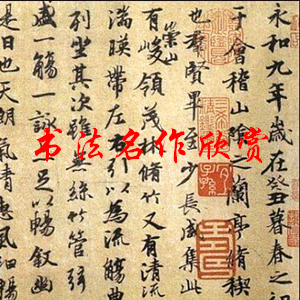 永和九年歲在癸丑暮春之初
于會稽山陰之蘭亭脩稧
也羣賢畢至少長咸集此
崇山
有峻領茂林脩竹又有清流
湍暎帶左右引以為流觴曲
列坐其次雖無絲竹管弦
盛一觴一詠亦足以暢叙幽
是日也天朗氣清惠風和暢
书法名作欣赏